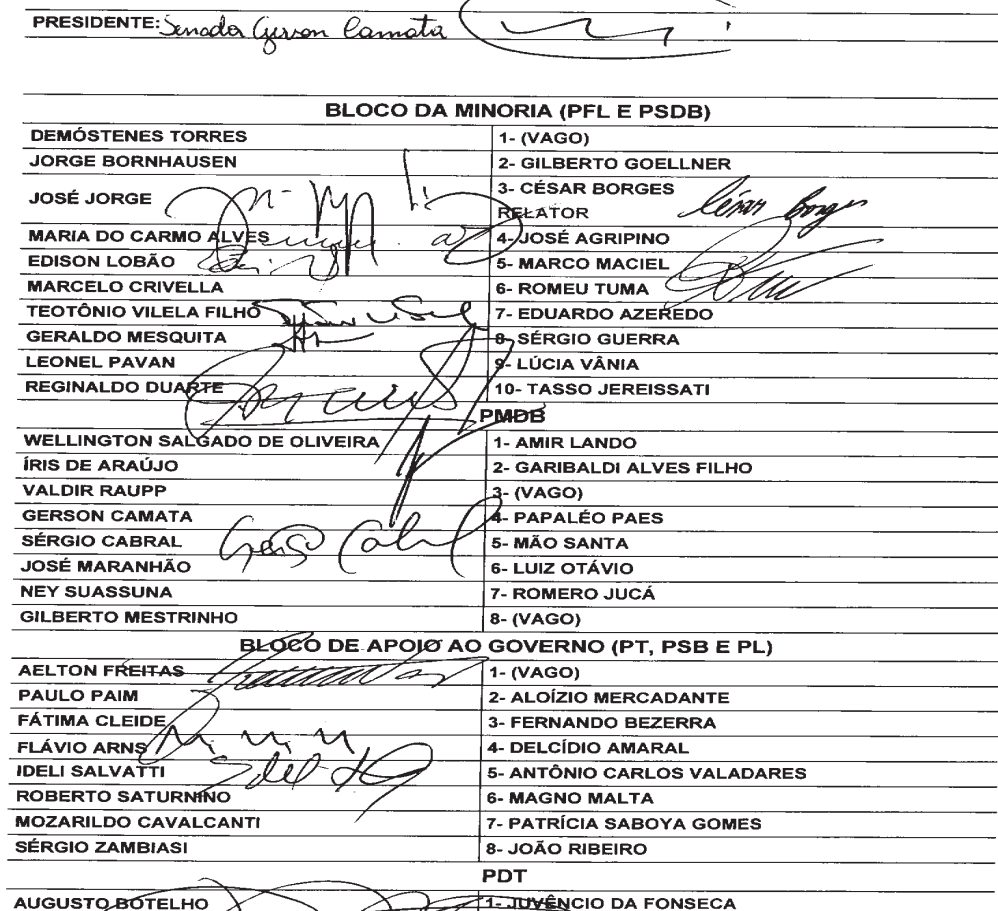 PRESIDENTE: Senador Gerson Camata
BLOCO DA MINORIA (PFL E PSDB)
DEMÓSTENES TORRES 1- (VAGO)
JORGE BORNHAUSEN 2- GILBERTO GOELLNER
JOSÉ JORGE 3- CÉSAR BORGES César Borges
RELATOR
MARIA DO CARMO ALVES 4- JOSÉ AGRIPINO
EDISON LOBÃO 5- MARCO MACIEL
MARCELO CRIVELLA 6- ROMEU TUMA
TEOTÔNIO VILELA FILHO 7- EDUARDO AZEREDO
GERALDO MESQUITA 8- SÉRGIO GUERRA
LEONEL PAVAN 9- LÚCIA VÂNIA
REGINALDO DUARTE 10- TASSO JEREISSATI
PMDB
WELLINGTON SALGADO DE OLIVEIRA 1- AMIR LANDO
ÍRIS DE ARAÚJO 2- GARIBALDI ALVES FILHO
VALDIR RAUPP 3- (VAGO)
GERSON CAMATA 4- PAPALÉO PAES
SÉRGIO CABRAL 5- MÃO SANTA
JOSÉ MARANHÃO 6- LUIZ OTÁVIO
NEY SUASSUNA 7- ROMERO JUCÁ
GILBERTO MESTRINHO 8- (VAGO)
BLOCO DE APOIO AO GOVERNO (PT, PSB E PL)
AELTON FREITAS 1- (VAGO)
PAULO PAIM 2- ALOÍZIO MERCADANTE
FÁTIMA CLEIDE 3- FERNANDO BEZERRA
FLÁVIO ARNS 4- DELCÍDIO AMARAL
IDELI SALVATTI 5- ANTÔNIO CARLOS VALADARES
ROBERTO SATURNINO 6- MAGNO MALTA
MOZARILDO CAVALCANTI 7- PATRÍCIA SABOYA GOMES
SÉRGIO ZAMBIASI 8- JOÃO RIBEIRO
PDT
AUGUSTO BOTELHO 1- JUVÊNCIO DA FONSECA